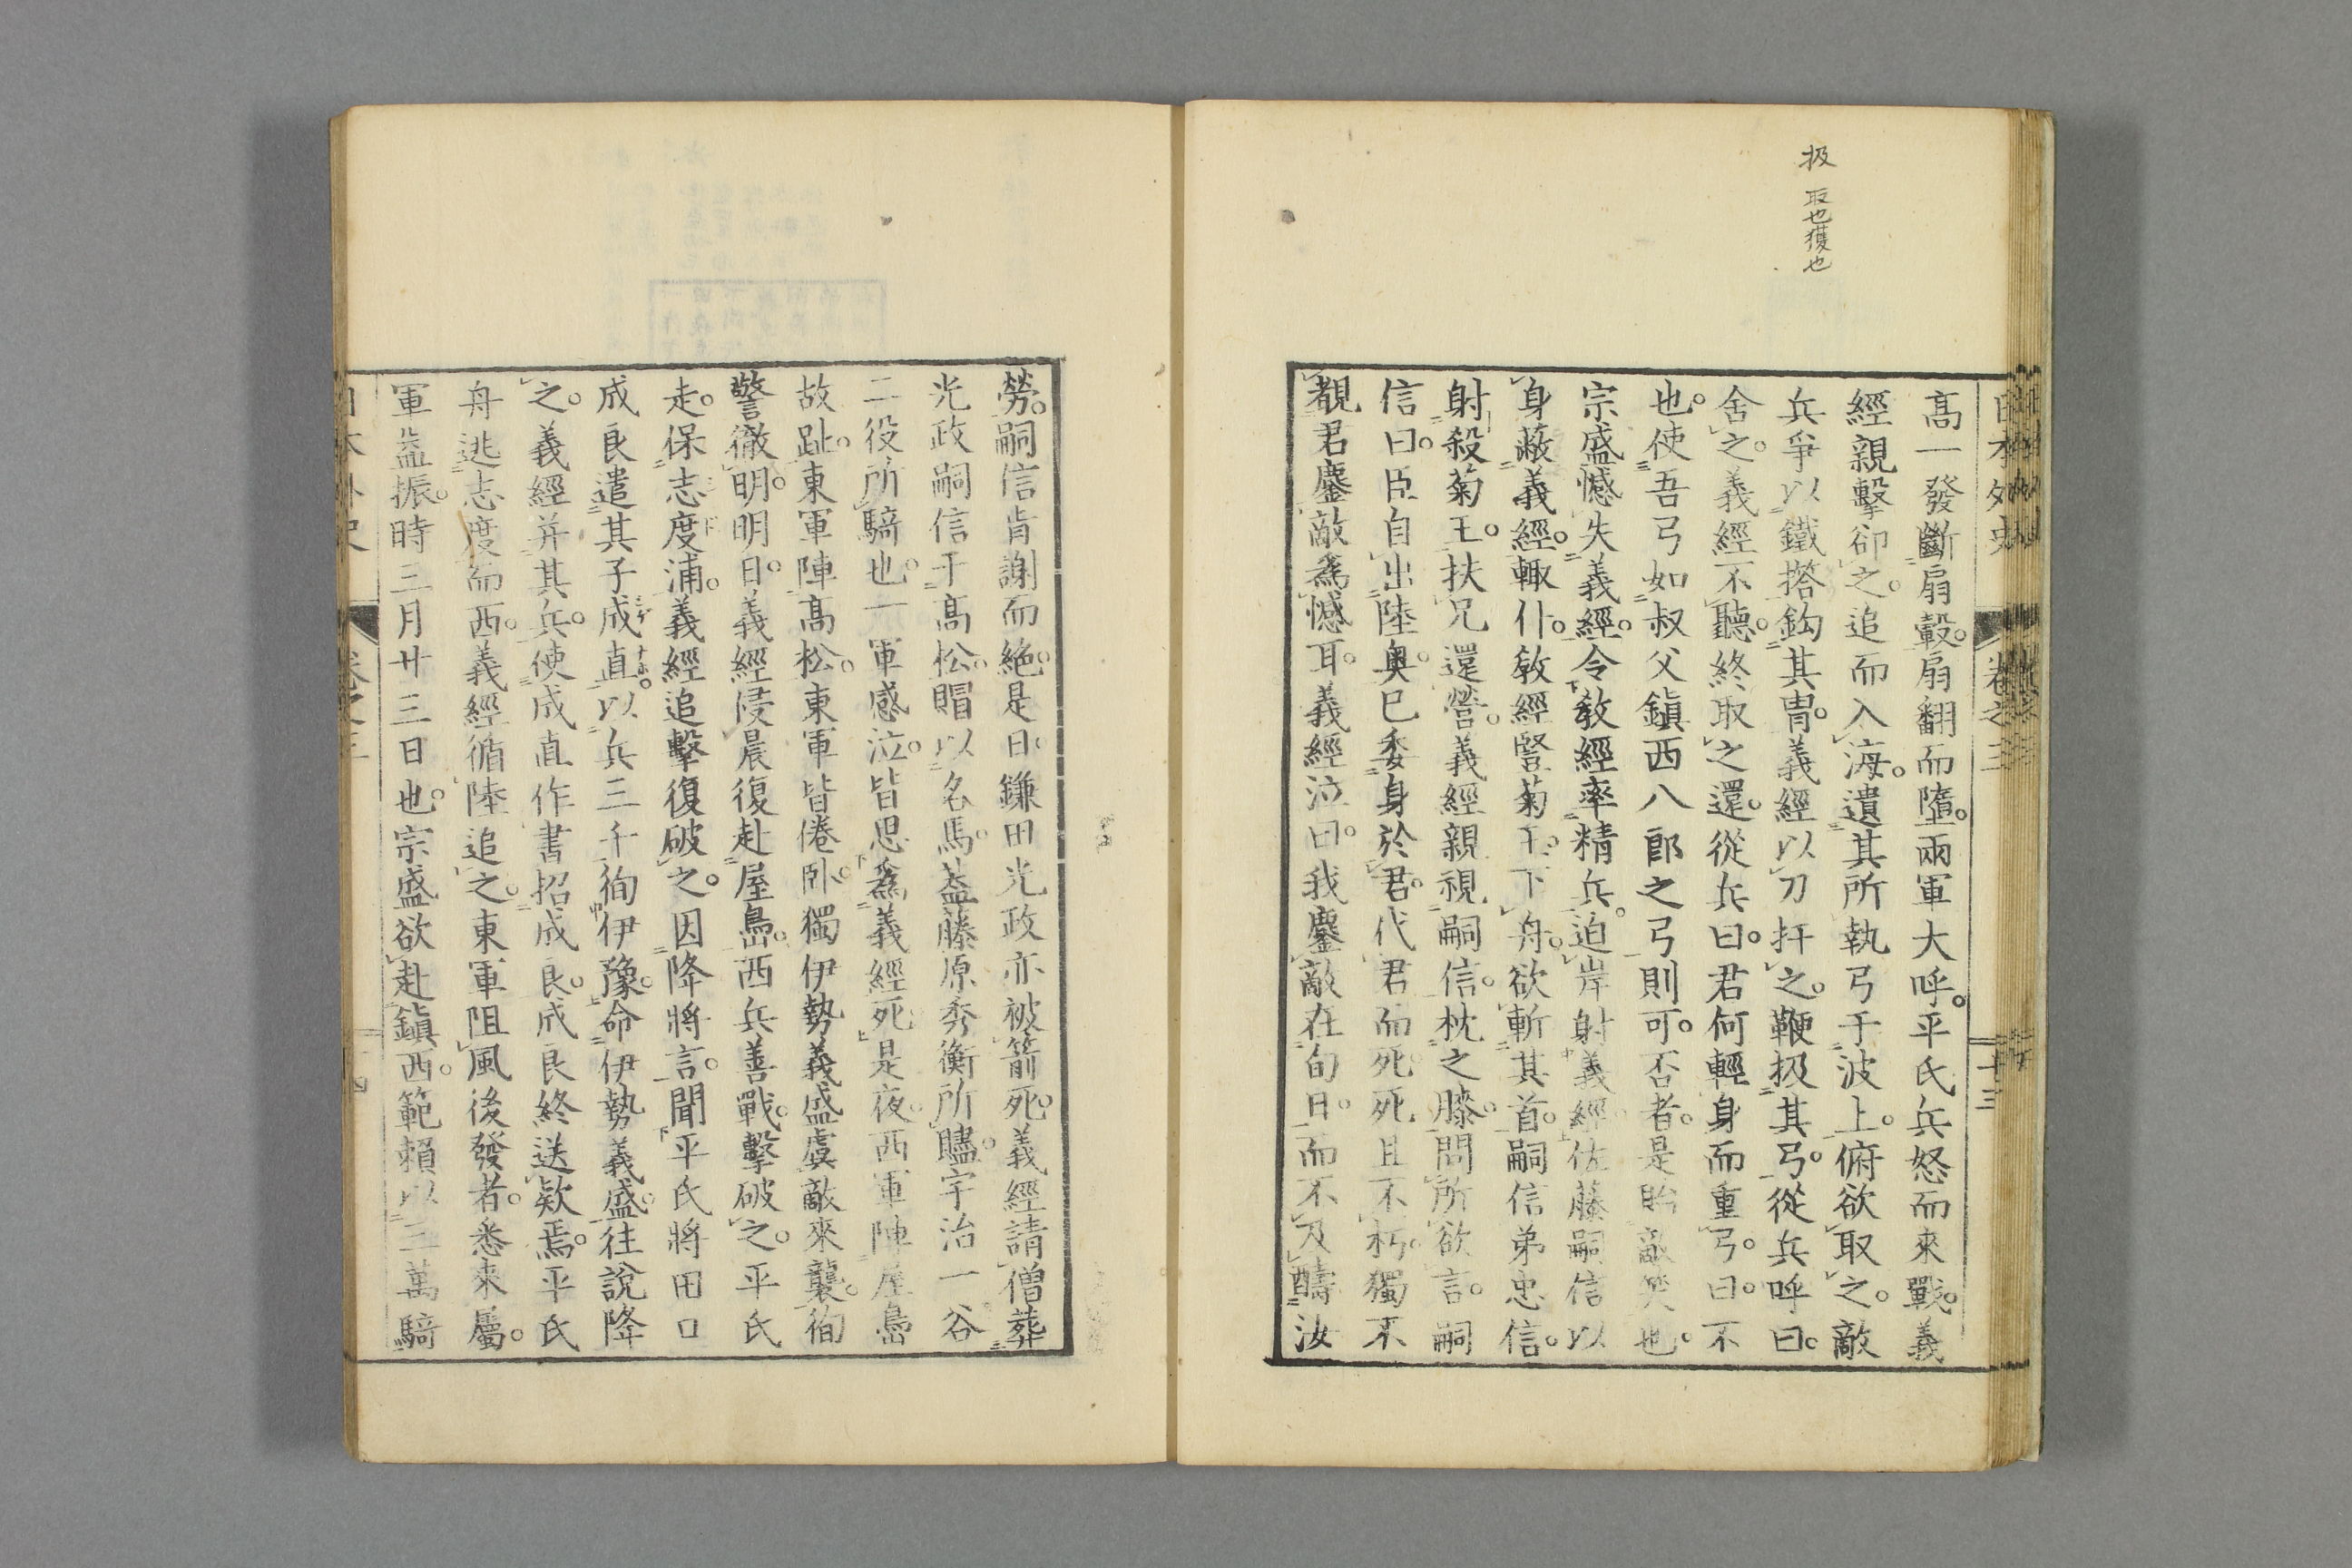 扱 取也獲也
日本外史 卷之三 十三
高一發斷扇轂。扇翻而墮。兩軍大呼。平氏兵怒而來戰。義
經親擊卻之。追而入海。遺其所執弓于波上。俯欲取之。敵
兵爭以鐵撘鈎其冑。義經以刀扞之。鞭扱其弓。從兵呼曰。
舍之。義經不聽。終取之還。從兵曰。君何輕身而重弓。曰。不
也。使吾弓如叔父鎭西八郎之弓則可。否者。是貽敵笑也。
宗盛憾失義經。令敎經率精兵。迫岸射義經。佐藤嗣信以
身蔽義經。輙仆。敎經豎菊王。下舟。欲斬其首。嗣信弟忠信。
射殺菊王。扶兄還營。義經親視嗣信。枕之膝。問所欲言。嗣
信曰。臣自出陸奧。已委身於君。代君而死。死且不朽。獨不
覩君鏖敵爲憾耳。義經泣曰。我鏖敵在旬日。而不及醻汝
勞。嗣信肯謝而絶。是日鎌田光政亦被箭死。義經請僧葬
光政嗣信于高松。賵以名馬。葢藤原秀衡所贐。宇治一谷
二役所騎也。一軍感泣。皆思爲義經死。是夜。西軍陣屋島
故趾。東軍陣高松。東軍皆倦臥。獨伊勢義盛虞敵來襲。徇
警徹明。明日。義經侵晨復赴屋島。西兵善戰。擊破之。平氏
走。保志度浦。義經追擊復破之。因降將言。聞平氏將田口
成良遣其子成直。以兵三千徇伊豫。命伊勢義盛。往說降
之。義經并其兵。使成直作書招成良。成良終送欵焉。平氏
舟逃志度而西。義經循陸追之。東軍阻風後發者。悉來屬。
軍益振。時三月廿三日也。宗盛欲赴鎭西。範賴以三萬騎
日本外史 卷之三